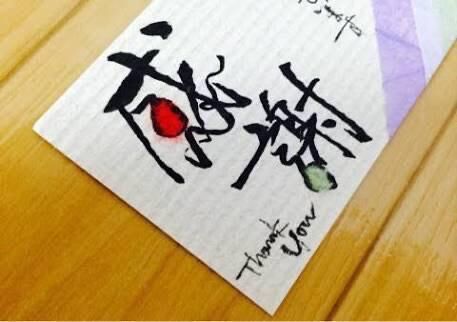 感謝
Thank
you